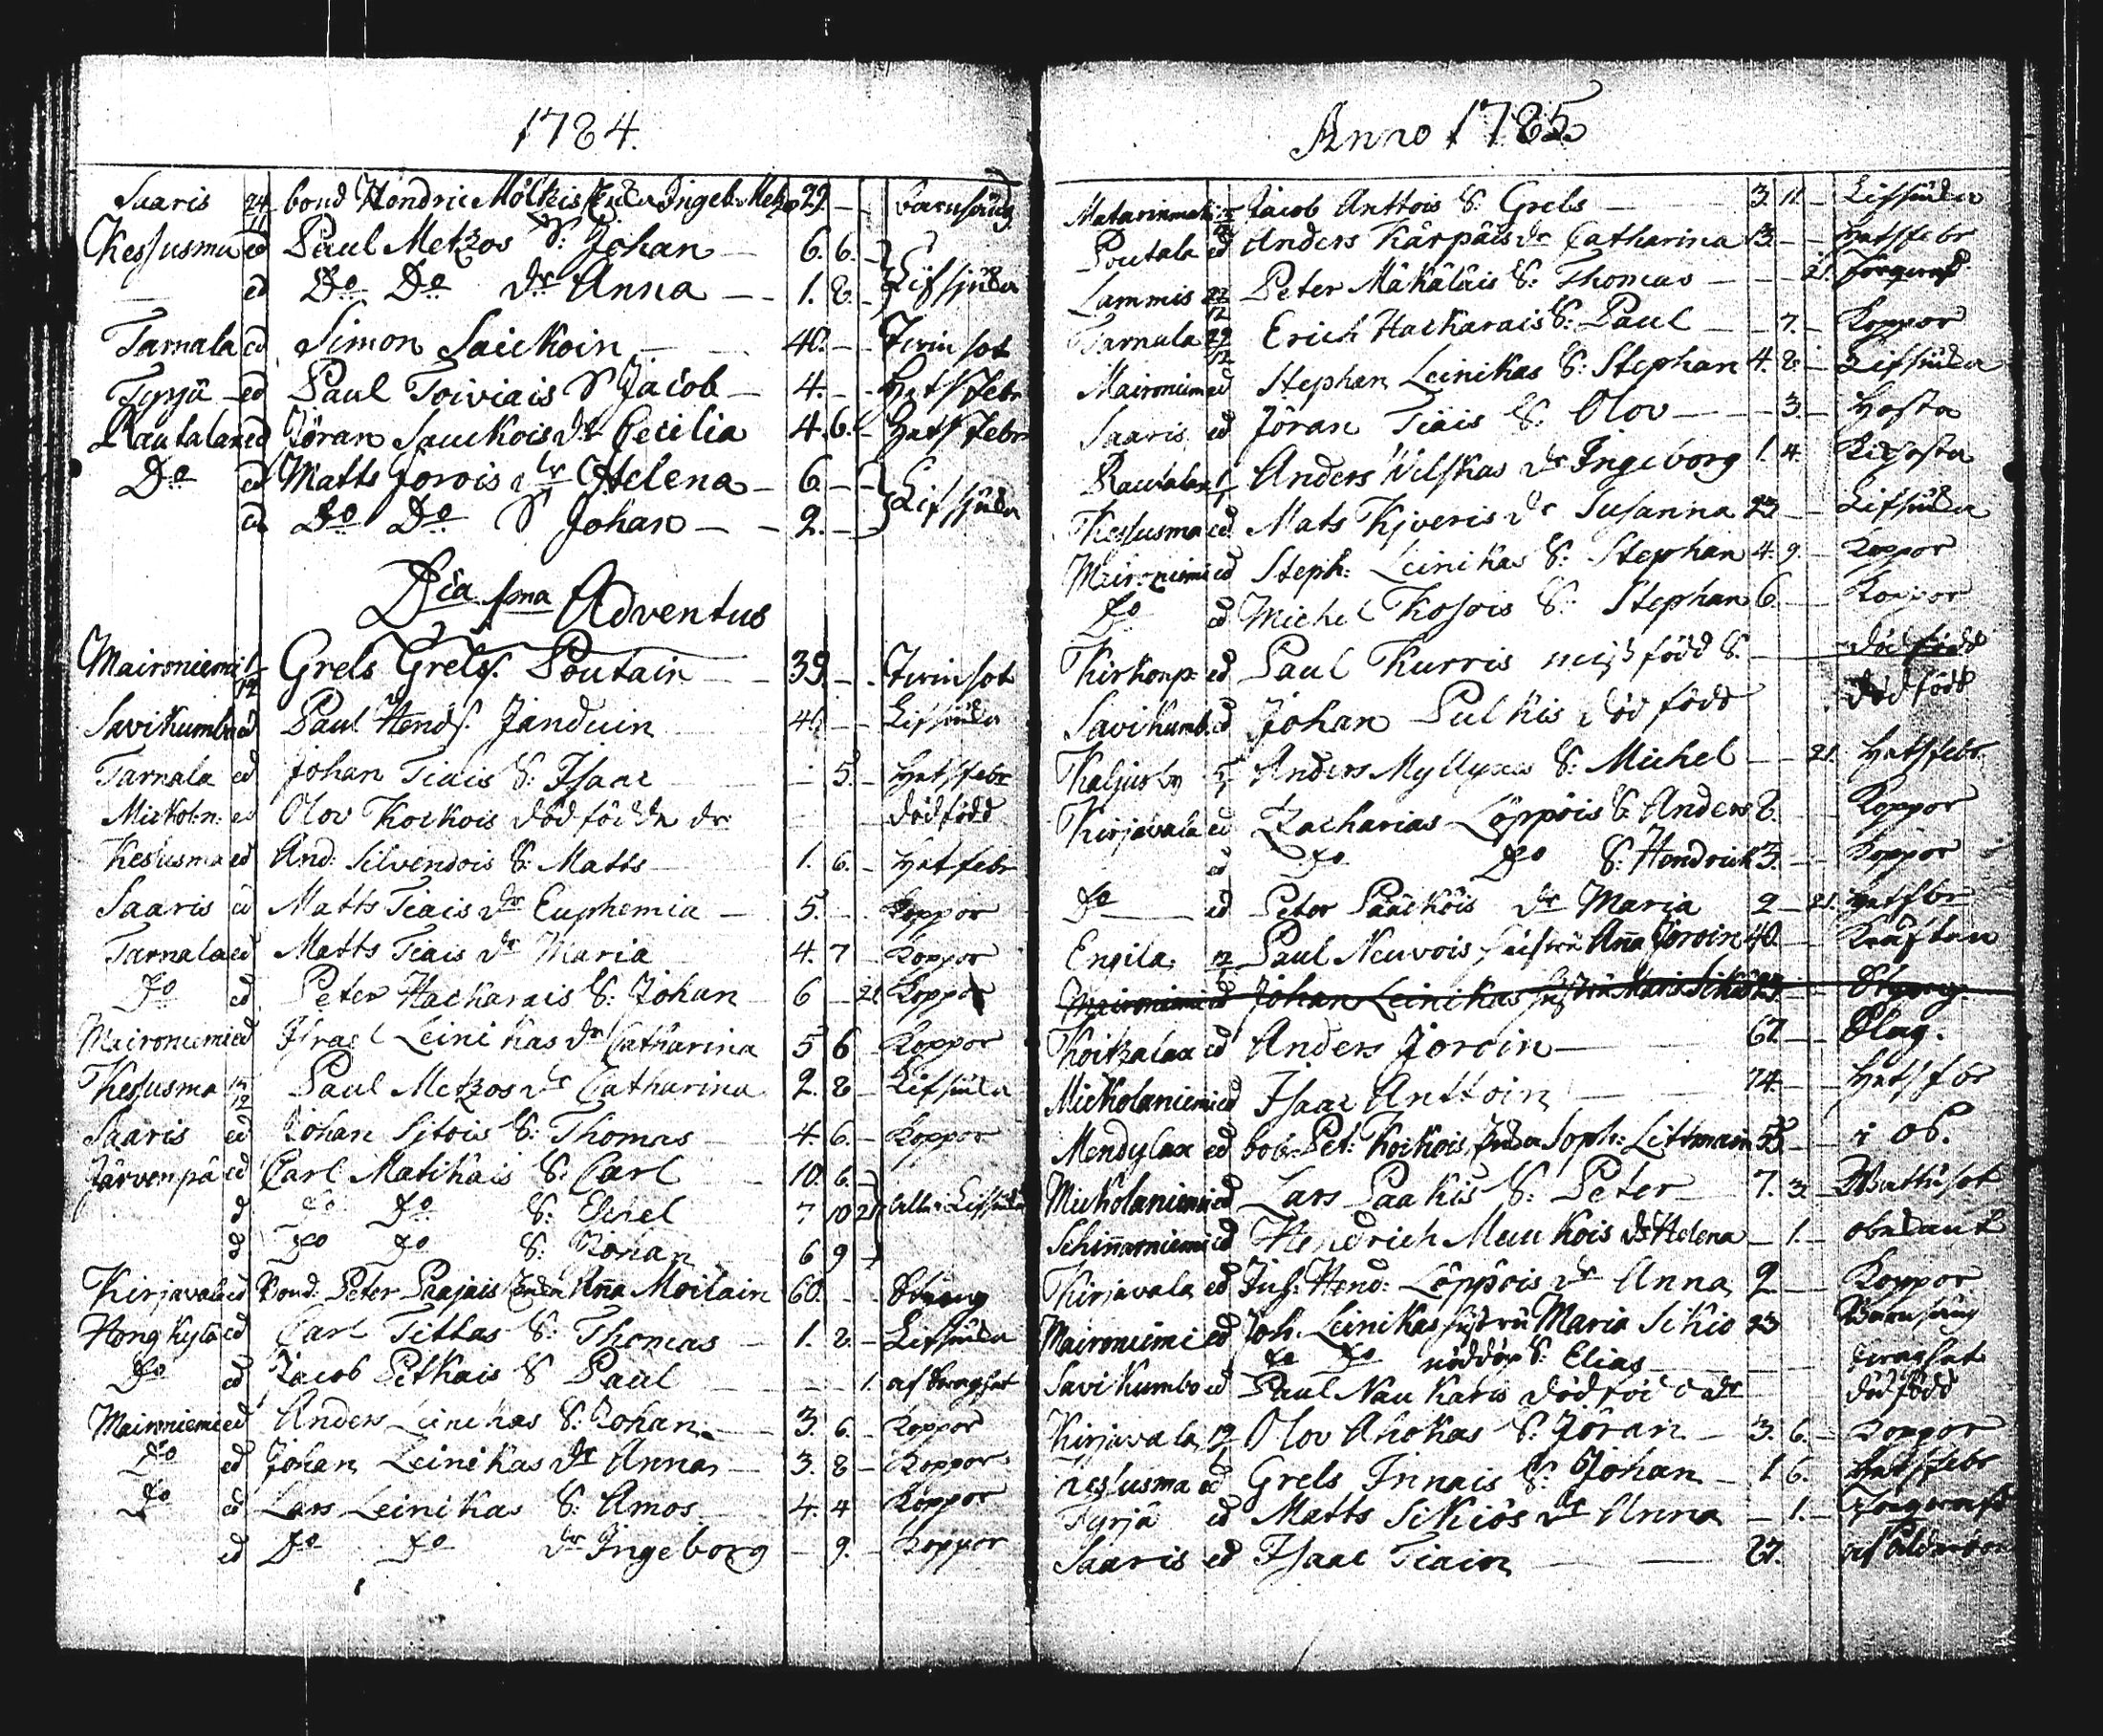 1784.
Saaris 24/11 bond Hendric Mölkis Enka Ingeb. Metzo 29. — Barnsäng
Kessusma ed Paul Metzos S: Johan — 6. 6. —
ed Do Do dr Anna — 1. 8. — Lifsjuka
Tarnala ed Simon Saickoin — 40. — Tvinsot
Tyrjä ed Paul Toiviais S Jacob — 4. — Hetsfebr
Rautalax ed Jöran Sauckois dr Cecilia 4. 6. — Hetsfebr
Do ed Matts Jorois dr Helena — 6. —
ed Do Do S Johan — 2. — Lifsjuka
Dca 1ma Adventus
Maironiemi 1/12 Grels Grelss. Poutain — 39. — Tvinsot
Savikumbu ed Paul Hends. Janduin 46. — Lifsiuka
Tarnala ed Johan Tiais S: Isaac — 5. — Hetsfebr
Mickoln: ed Olov Kockois dödfödda dr dödfödd
Kessusma ed And: Silvendois S: Matts — 1. 6. — Hetfebr
Saaris ed Matts Tiais dr Euphemia — 5. — Koppor
Tarnala ed Matts Tiais dr Maria 4. 7 — Koppor
Do ed Peter Hackarais S: Johan 6 — 21 Koppor
Maironiemi ed Israel Leinikas dr Catharina 5 6 Koppor
Kessusma 12/12 Paul Metzos dr Catharina 2. 8 — Lifsiuka
Saaris ed Johan Sitois S: Thomas — 4. 6. — Koppor
Järvenpä ed Carl Matikais S: Carl 10. 6. —
d Do Do S: Eliel 7 10 21 alla i Lifsiuka
d Do Do S: Johan 6 9 —
Kirjavala ed Bond. Peter Paajais Enka Aña Moilain 60. — Styng
Honokylä ed Carl Tittas S: Thomas — 1. 8. — Lifsiuka
Do ed Jacob Petkais S Paul — 1. af slaghet
Maironiemi ed Anders Leinikas S: Johan — 3. 6. — Koppor
Do ed Johan Leinikas dr Anna — 3. 8 — Koppor
Do ed Lars Leinikas S: Amos 4. 4 Koppor
ed Do Do dr Ingeborg — 9. — Koppor
Anno 1785
Jacob Anttois S: Grels — 3. 11. — Lifsiuka
Poutala ed Anders Kärpäis dr Catharina 13. — Hetsfebr
Lammis 22/12 Peter Mäkäläis S: Thomas — 21.
Tarnala 29/12 Erich Hackarais S: Paul — 7. — Koppor
Maironiem ed Stephan Leinikas S: Stephan 4. 8. — Lifsiuka
Saaris ed Jöran Tiais S: Olov — 3. — Hosta
Rautalax Anders Vilskas dr Ingeborg 1. 4. Kichosta
Kessusma ed Mats Kjveris dr Susanna 23 — Lifsiuka
Maironiemi ed Steph: Leinikas S: Stephan 4. 9. — Koppor
Do ed Michel Kosois S: Stephan 6. — Koppor
Kirkonp: ed Paul Kurris missfödd S. — dödfödd
Savikumb. ed Johan Pulkis död född dödfödd
Kaljusby Anders Myllynes S: Michel — 21. Hetsfebr
Kirjavala ed Zacharias Löppöis S. Anders 8. Koppor
ed Do Do S: Hendrick 3. — Koppor
Do ed Peter Pääcköis dr Maria 2 — 21. Hetsfbr
Enqila Paul Neuvois hustru Aña Jorvin 40. Kräftan
Maironiemi ed Johan Leinikas hustru Maria Sikiö 23. — Styng
Koitzalax ed Anders Jorvin — 62 — Slag.
Mickolaniemi ed Isaac Anttoin — 74. — Hetsfbr
Mendylax ed bob: Pet: Kockois Enka Soph: Littmain 55. — i ob.
Mickolaniemi ed Lars Paakis S: Peter 7. 3. — Wattusot
Schiñarniemi ed Hendrich Muukois dr Helena — 1. — obekant
Kirjavala ed Inh: Hend: Löppöis dr Anna 2 — Koppor
Maironiemi ed Joh. Leinikas hustru Maria Sikiö 23 Barnsäng
Do Do nöddöp S: Elias —
Savikumbu ed Paul Naukaris dödföd dr dödfödd
Kirjavala Olov Ahokas S: Jöran — 3. 6. — Koppor
Kessusma ed Grels Innais S: Johan — 1 6. — Hetsfebr
Tyrjä ed Matts Sikiös dr Anna — 1. —
Saaris ed Isaac Tiain — 67. af ålderdom